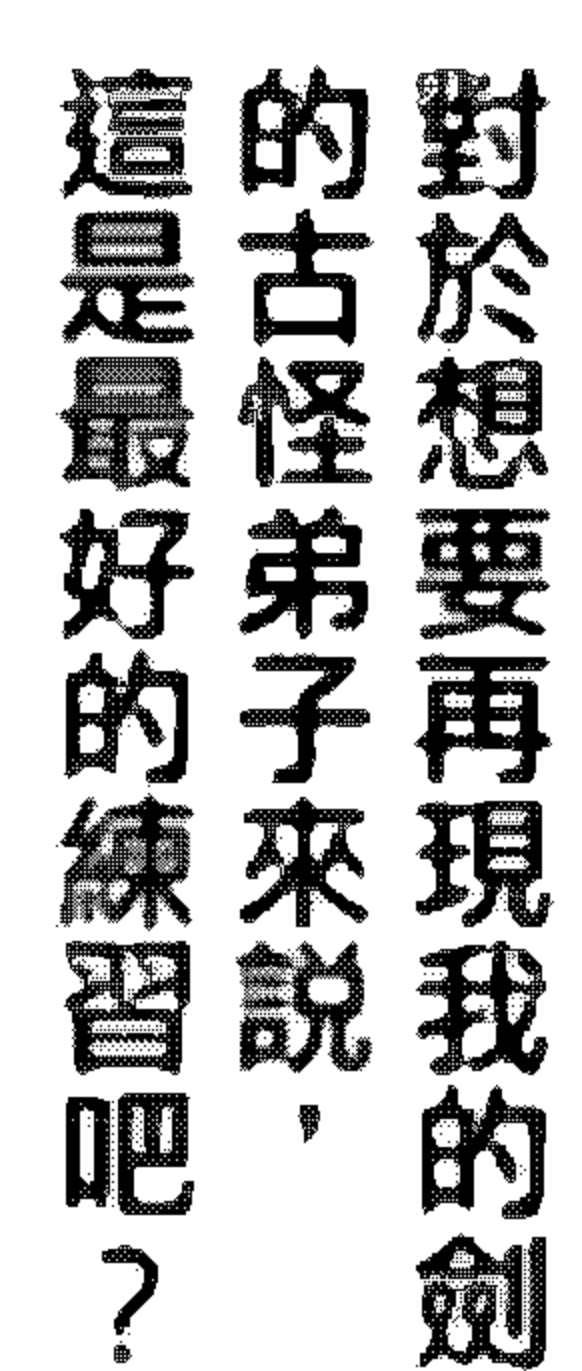 對於想要再現我的劍
的古怪弟子來說，
這是最好的練習吧？